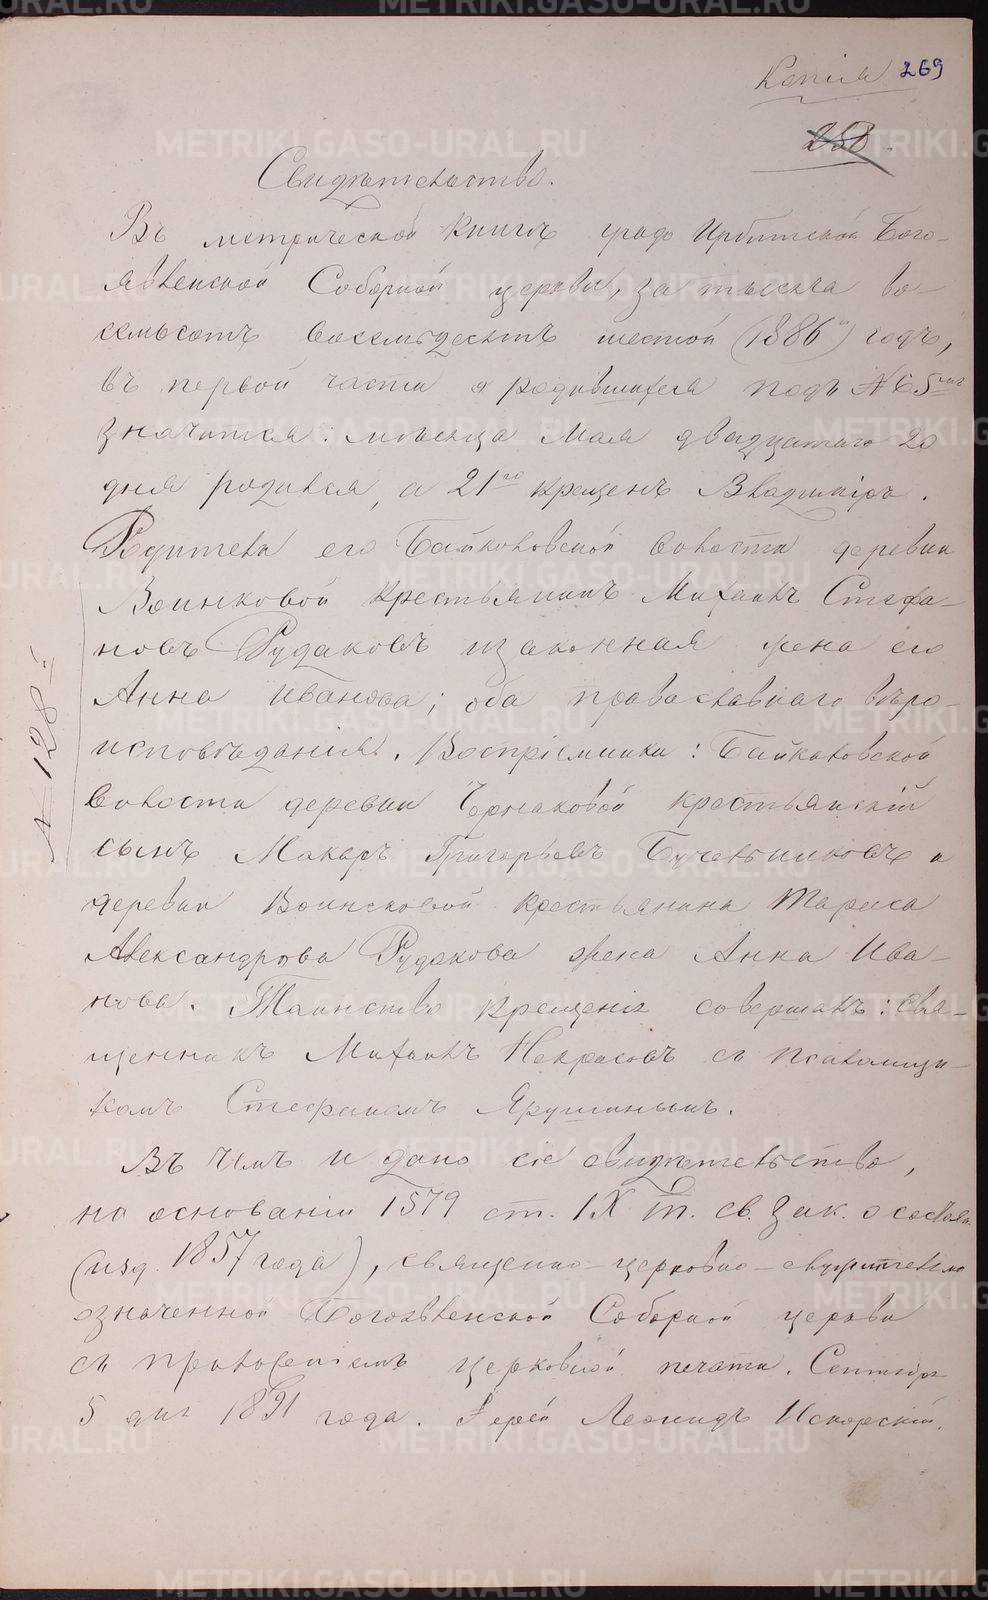 Копія 269
258
Свидѣтельство.
Въ метрической книгѣ градо Ирбитской Бого-
явленской Соборной церкви, за тысяча во-
семьсотъ восемьдесятъ шестой (1886й) годъ,
въ первой части о родившихся подъ № 65мъ
значится: мѣсяца Мая двадцатаго 20
дня родился, а 21го крещенъ Владиміръ.
Родители его Байкаловской волости деревни
Воинковой крестьянинъ Михаилъ Стефа-
новъ Рудаковъ и законная жена его
Анна Иванова; оба православнаго вѣро-
исповѣданія. Воспріемники: Байкаловской
волости деревни Чермаковой крестьянскій
сынъ Макаръ Григорьевъ и
деревни крестьянина
Александрова Рудакова жена Анна Ива-
нова. Таинство крещенія совершалъ: Свя-
щенникъ Михаилъ Некрасовъ съ псаломщи-
комъ Стефаномъ Ярушинымъ.
Въ чемъ и дано сіе свидѣтельство,
на основаніи 1579 ст. IX т. св. зак. о состоян.
(изд. 1857 года), священно-церковно-
означенной Богоявленской Соборной церкви
съ приложеніемъ церковной печати. Сентября
5 дня 1891 года. Іерей Леонидъ Искорскій.
№ 128
METRIKI.GASO-URAL.RU